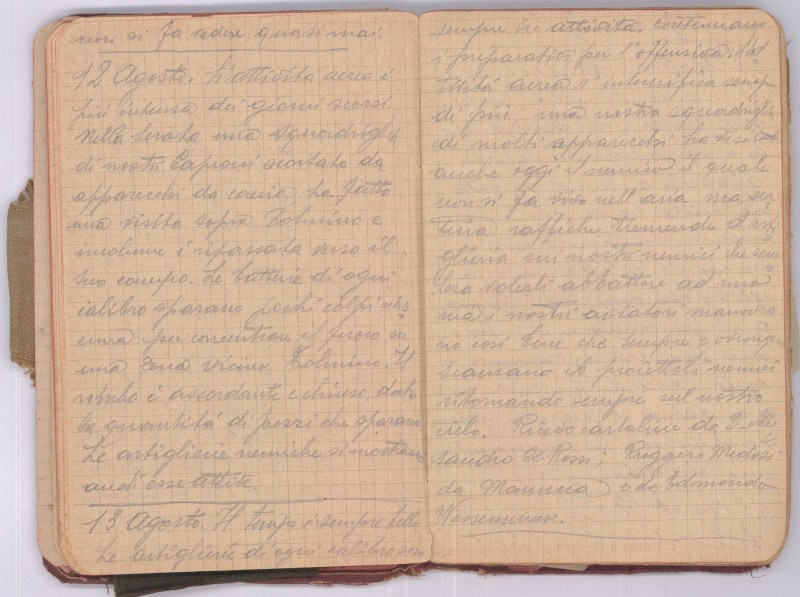 non si fa vedere quasi mai.
12 Agosto. L'attività aerea è
più intensa dei giorni scorsi
Nella serata una squadriglia
di nostri Caproni scortata da
apparecchi da caccia ha fatto
una visita sopra Tolmino e
incolume è ripassata verso il
suo campo. Le batterie di ogni
calibro sparano pochi colpi
una per concentrare il fuoco su
una zona vicino Tolmino. Il
rombo è assordante e chiuso, data
la quantità di pezzi che sparano
Le artiglierie nemiche si mostrano
anch'esse attive.
13 Agosto. Il tempo è sempre bello
Le artiglierie di ogni calibro son
sempre in attività. Continuano
i preparativi per l'offensiva. L'at
tività aerea s'intensifica sempre
di più, una nostra squadriglia
di molti apparecchi ha visitato
anche oggi il nemico il quale
non si fa vivo nell'aria ma
raffiche tremende d'arti
glieria sui nostri che sem
bra volerli abbattere ad uno
ma i nostri aviatori manovra
no così bene che sempre e ovunque
scansano i proiettili nemici
ritornando sempre sul nostro
cielo. Ricevo cartoline da
sandro De Rossi; Ruggero
da Mamma e da Edmondo